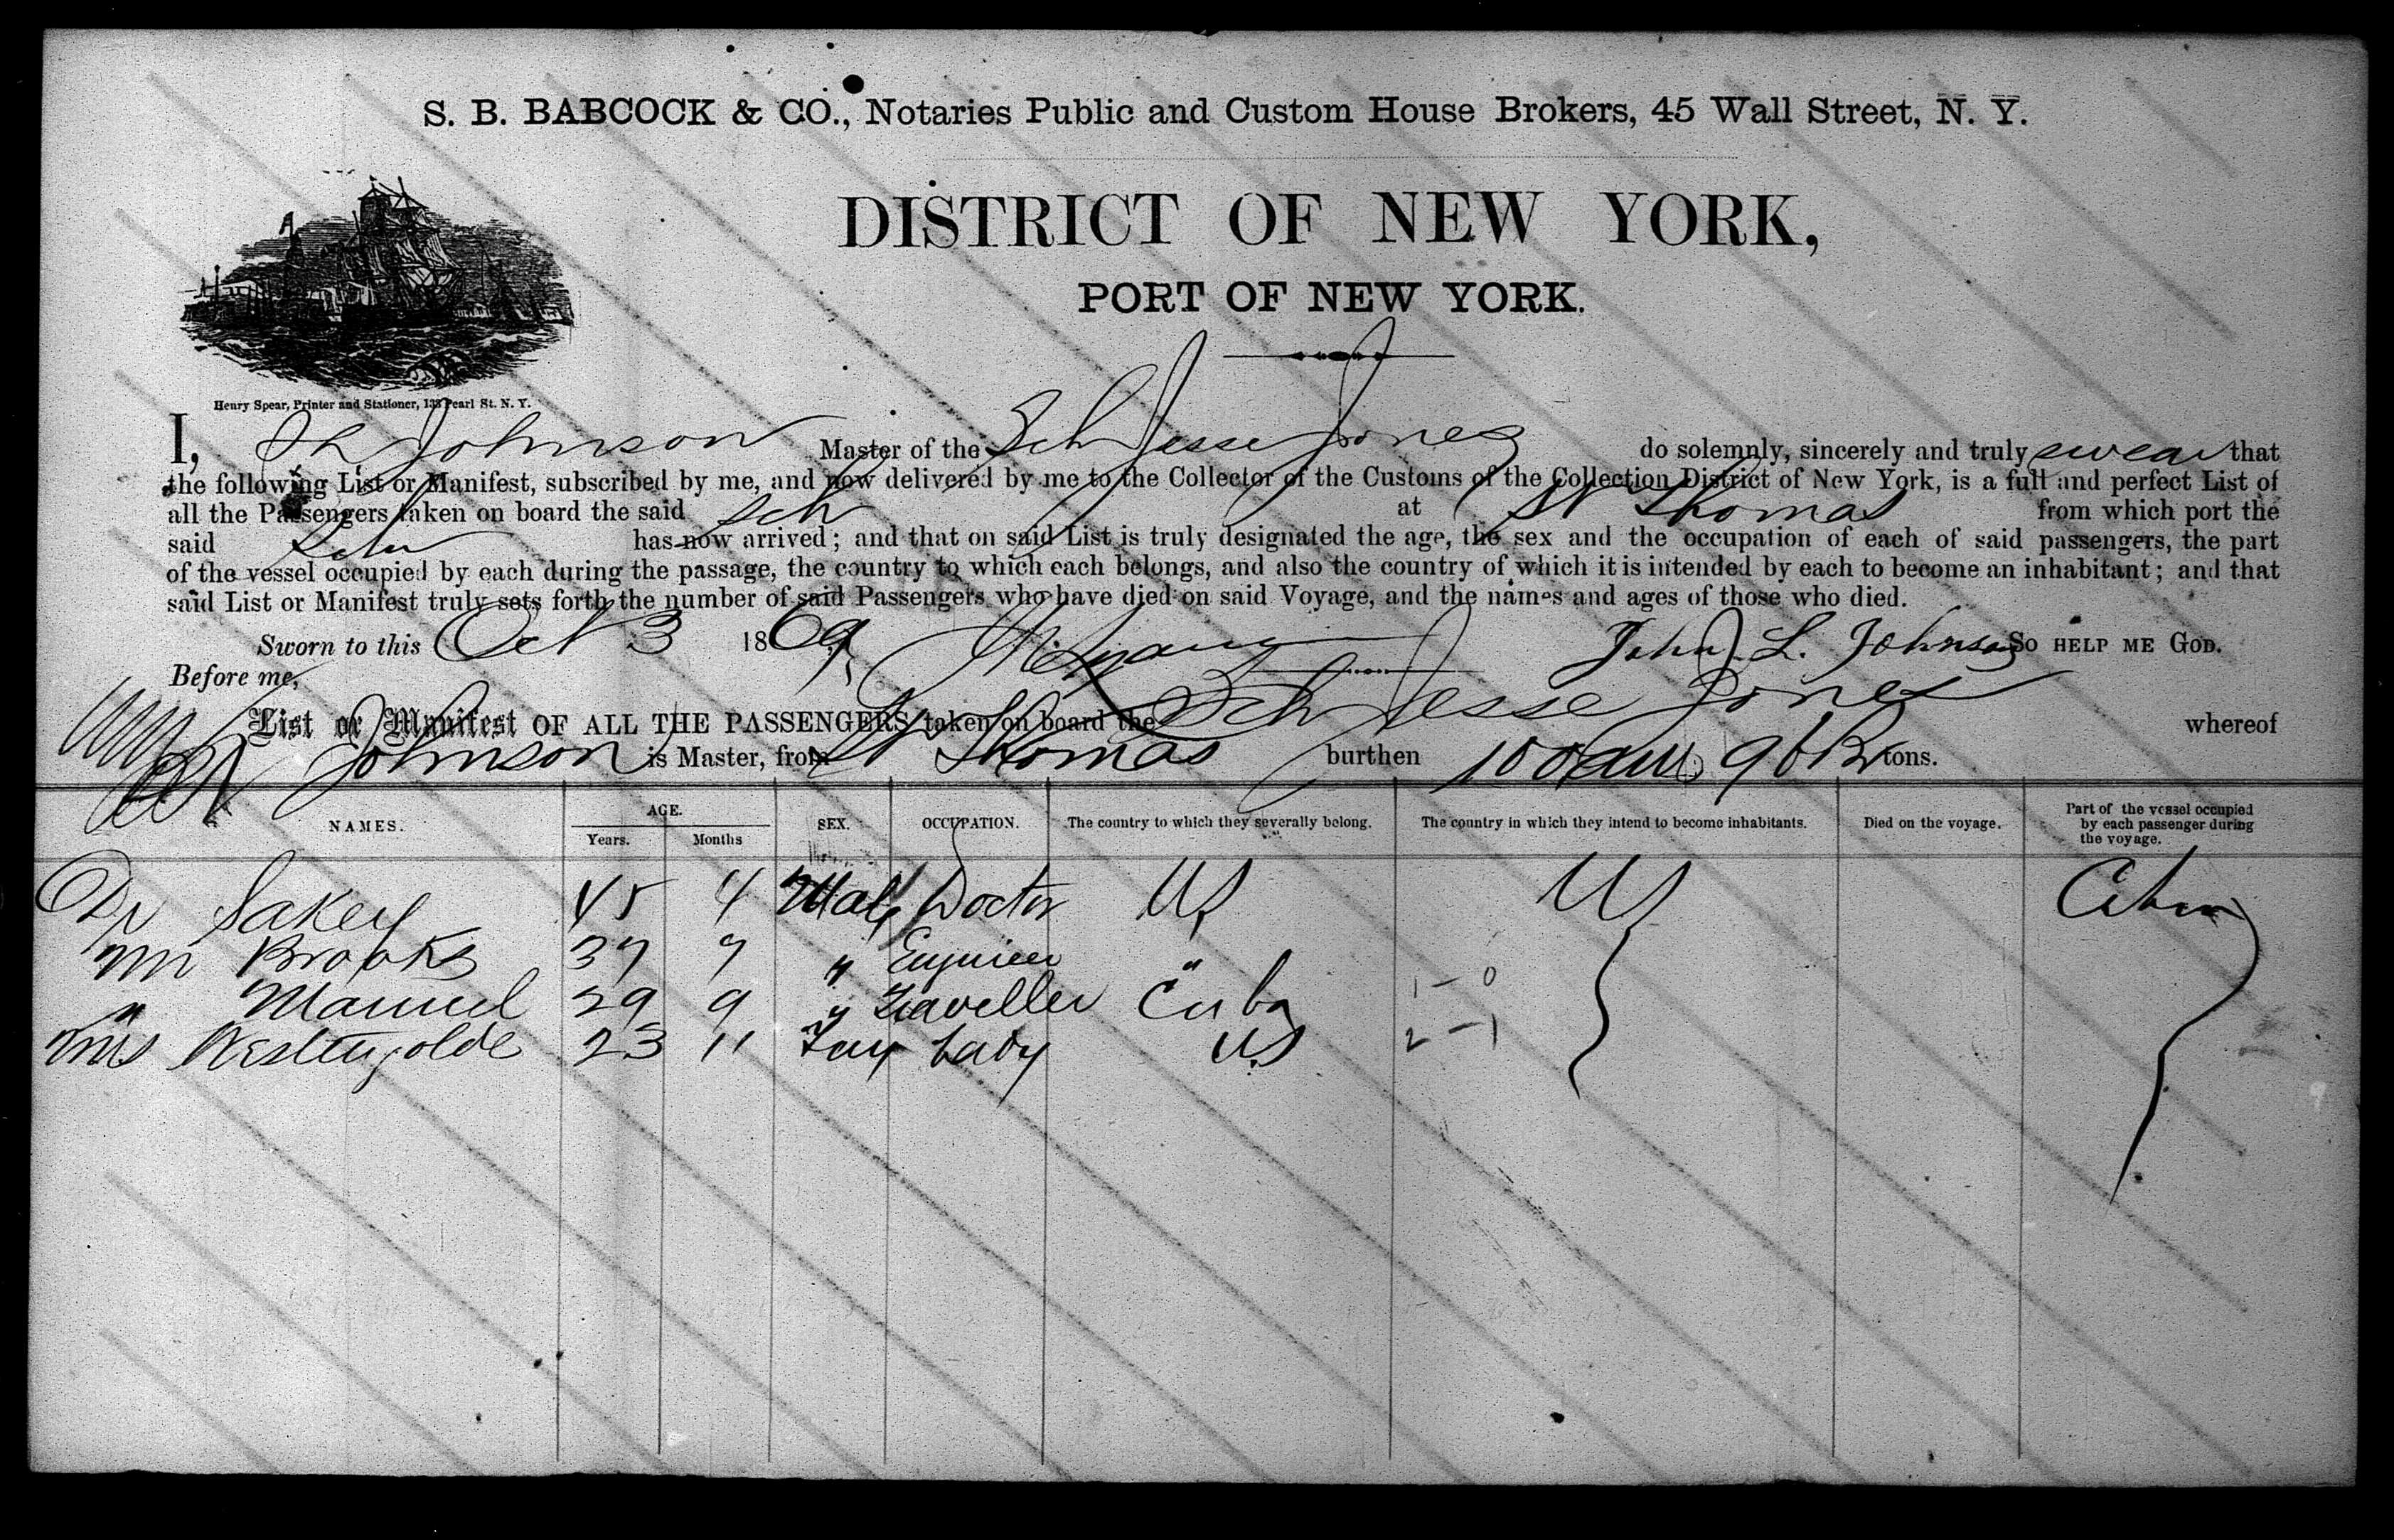 S. B. BABCOCK & CO., Notaries Public and Custom House Brokers, 45 Wall Street, N. Y.
DISTRICT OF NEW YORK,
PORT OF NEW YORK.
Henry Spear, Printer and Stationer, 133 Pearl St. N. Y.
I, Johnson Master of the Sch Jesse Jones do solemnly, sincerely and truly swear that
the following List or Manifest, subscribed by me, and now delivered by me to the Collector of the Customs of the Collection District of New York, is a full and perfect List of
all the Passengers taken on board the said Sch at St Thomas from which port the
said Sch has now arrived; and that on said List is truly designated the age, the sex and the occupation of each of said passengers, the part
of the vessel occupied by each during the passage, the country to which each belongs, and also the country of which it is intended by each to become an inhabitant; and that
said List or Manifest truly sets forth the number of said Passengers who have died on said Voyage, and the names and ages of those who died.
Sworn to this Oct 3 1869 John L. Johnson So HELP ME GOD.
Before me,
List or Manifest OF ALL THE PASSENGERS taken on board the Sch Jesse Jones whereof
Johnson is Master, from St Thomas burthen tons.
NAMES. AGE. Years. Months SEX. OCCUPATION. The country to which they severally belong. The country in which they intend to become inhabitants. Died on the voyage. Part of the vessel occupied by each passenger during the voyage.
Dr Sakey 45 4 Male Doctor US US
Mr Brooks 37 7 " Engineer "
" Manuel 29 9 " Traveller Cuba 1 - 0
23 11 Lady US 2 - 1